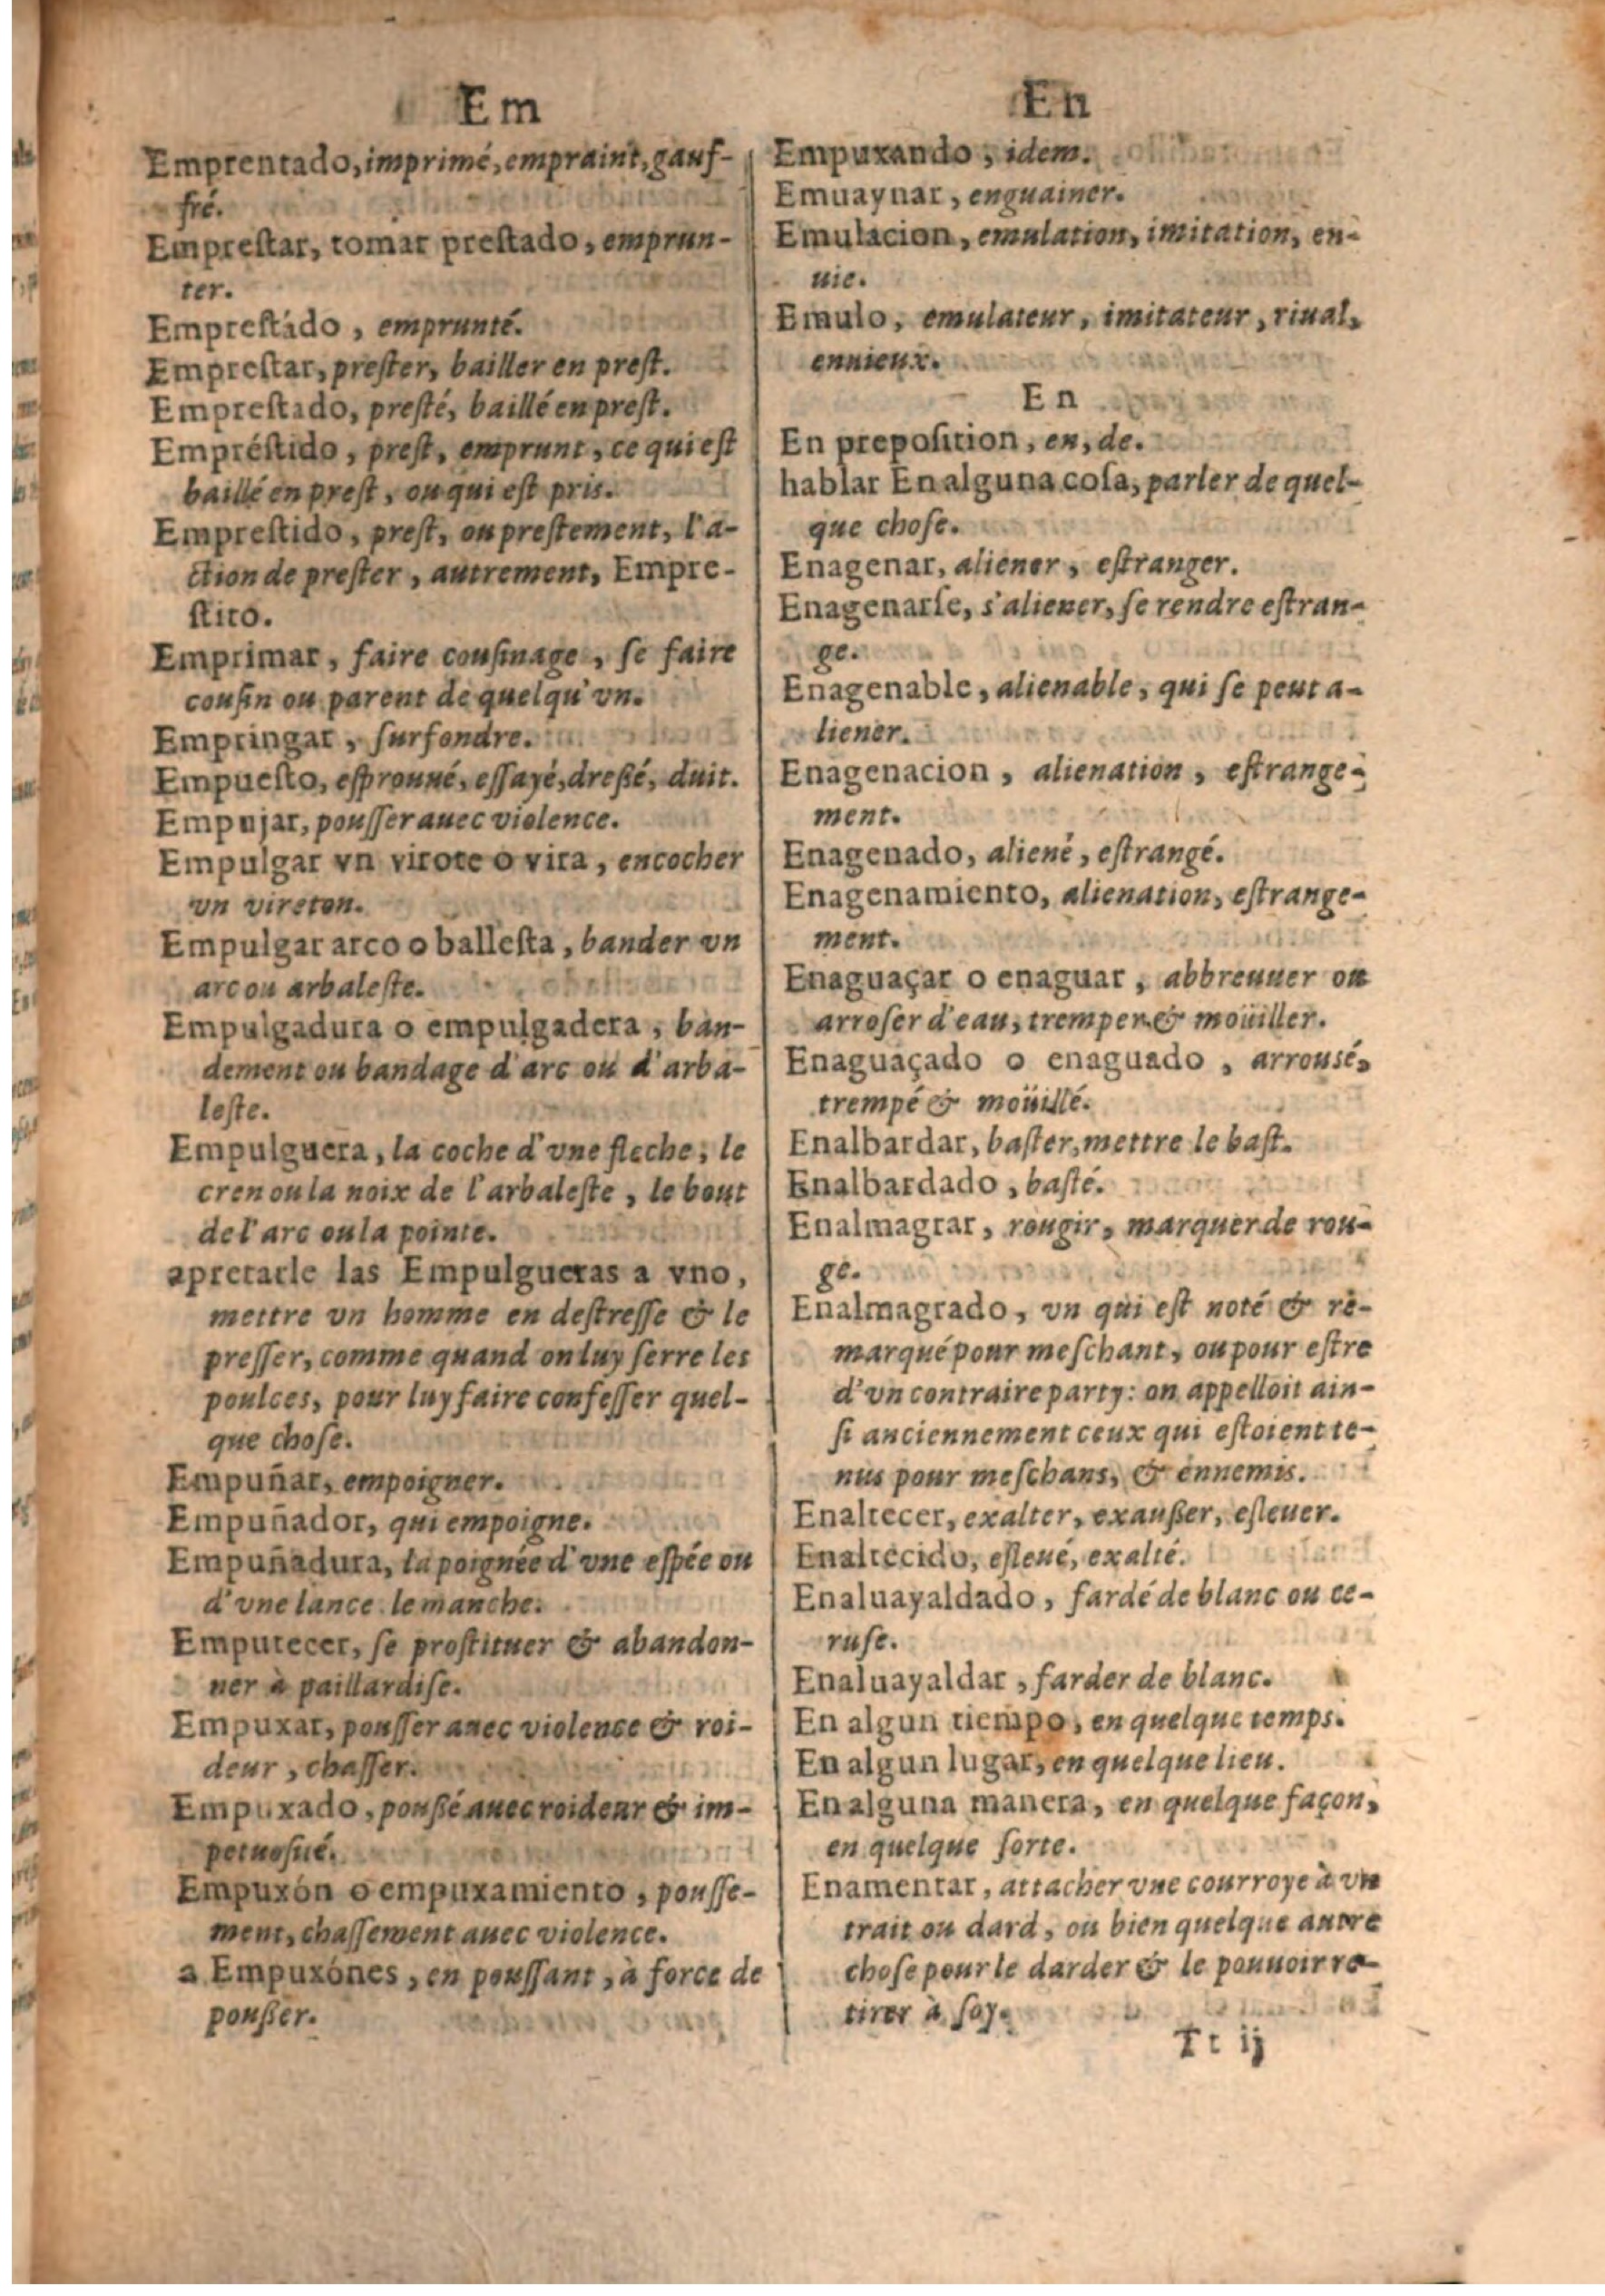 Em
Emprentado, imprimé, empraint, gauf-
fré.
Empreſtar, tomar preſtado, emprun-
ter.
Empreſtádo, emprunté.
Empreſtar, preſter, bailler en preſt.
Empreſtado, preſté, baillé en preſt.
Empréſtido, preſt, emprunt, ce qui eſt
baillé en preſt, ou qui eſt pris.
Empreſtido, preſt, ou preſtement, l'a-
ction de preſter, autrement, Empre-
ſtito.
Emprimar, faire couſinage, ſe faire
couſin ou parent de quelqu'vn.
Empringar, ſurfondre.
Empueſto, eſprouué, eſſayé, dreßé, duit.
Empujar, pouſſer auec violence.
Empulgar vn virote o vira, encocher
vn vireton.
Empulgar arco o balleſta, bander vn
arc ou arbaleſte.
Empulgadura o empulgadera, ban-
dement ou bandage d'arc ou d'arba-
leſte.
Empulguera, la coche d'vne fleche, le
cren ou la noix de l'arbaleſte, le bout
de l'arc ou la pointe.
apretarle las Empulgueras a vno,
mettre vn homme en deſtreſſe & le
preſſer, comme quand on luy ſerre les
poulces, pour luy faire confeſſer quel-
que choſe.
Empuñar, empoigner.
Empuñador, qui empoigne.
Empuñadura, la poignée d'vne eſpée ou
d'vne lance. le manche.
Emputecer, ſe proſtituer & abandon-
ner à paillardiſe.
Empuxar, pouſſer auec violence & roi-
deur, chaſſer.
Empuxado, poußé auec roideur & im-
petuoſité.
Empuxón o empuxamiento, pouſſe-
ment, chaſſement auec violence.
a Empuxónes, en pouſſant, à force de
poußer.
En
Empuxando, idem.
Emuaynar, enguainer.
Emulacion, emulation, imitation, en-
uie.
Emulo, emulateur, imitateur, riual,
ennieux.
En
En prepoſition, en, de.
hablar En alguna coſa, parler de quel-
que choſe.
Enagenar, aliener, eſtranger.
Enagenarſe, s'aliener, ſe rendre eſtran-
ge.
Enagenable, alienable, qui ſe peut a-
liener.
Enagenacion, alienation, eſtrange-
ment.
Enagenado, aliené, eſtrangé.
Enagenamiento, alienation, eſtrange-
ment.
Enaguaçar o enaguar, abbreuuer ou
arroſer d'eau, tremper & moüiller.
Enaguaçado o enaguado, arrousé,
trempé & moüillé.
Enalbardar, baſter, mettre le baſt.
Enalbardado, baſté.
Enalmagrar, rougir, marquer de rou-
ge.
Enalmagrado, vn qui eſt noté & re-
marqué pour meſchant, ou pour eſtre
d'vn contraire party: on appelloit ain-
ſi anciennement ceux qui eſtoient te-
nus pour meſchans, & ennemis.
Enaltecer, exalter, exaußer, eſleuer.
Enaltecido, eſleué, exalté.
Enaluayaldado, fardé de blanc ou ce-
ruſe.
Enaluayaldar, farder de blanc.
En algun tiempo, en quelque temps.
En algun lugar, en quelque lieu.
En alguna manera, en quelque façon,
en quelque ſorte.
Enamentar, attacher vne courroye à vn
trait ou dard, ou bien quelque autre
choſe pour le darder & le pouuoir re-
tirer à ſoy.
Tt ij